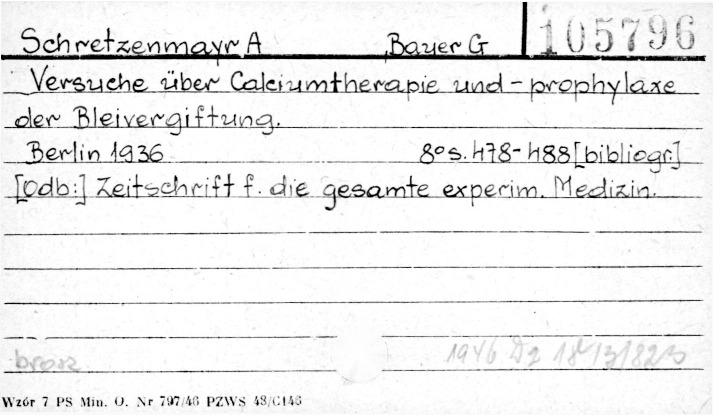 Schretzenmayr A Bayer G 105796
Versuche über Calciumtherapie und-prophylaxe
der Bleivergiftung.
Berlin 1936 8os.478-488[bibliogr.]
[Odb:] Zeitschrift f. die gesamte experim. Medizin.
brosz. 1946 Dz
Wzór 7 PS Min. O. Nr 797/46 PZWS 48/C146